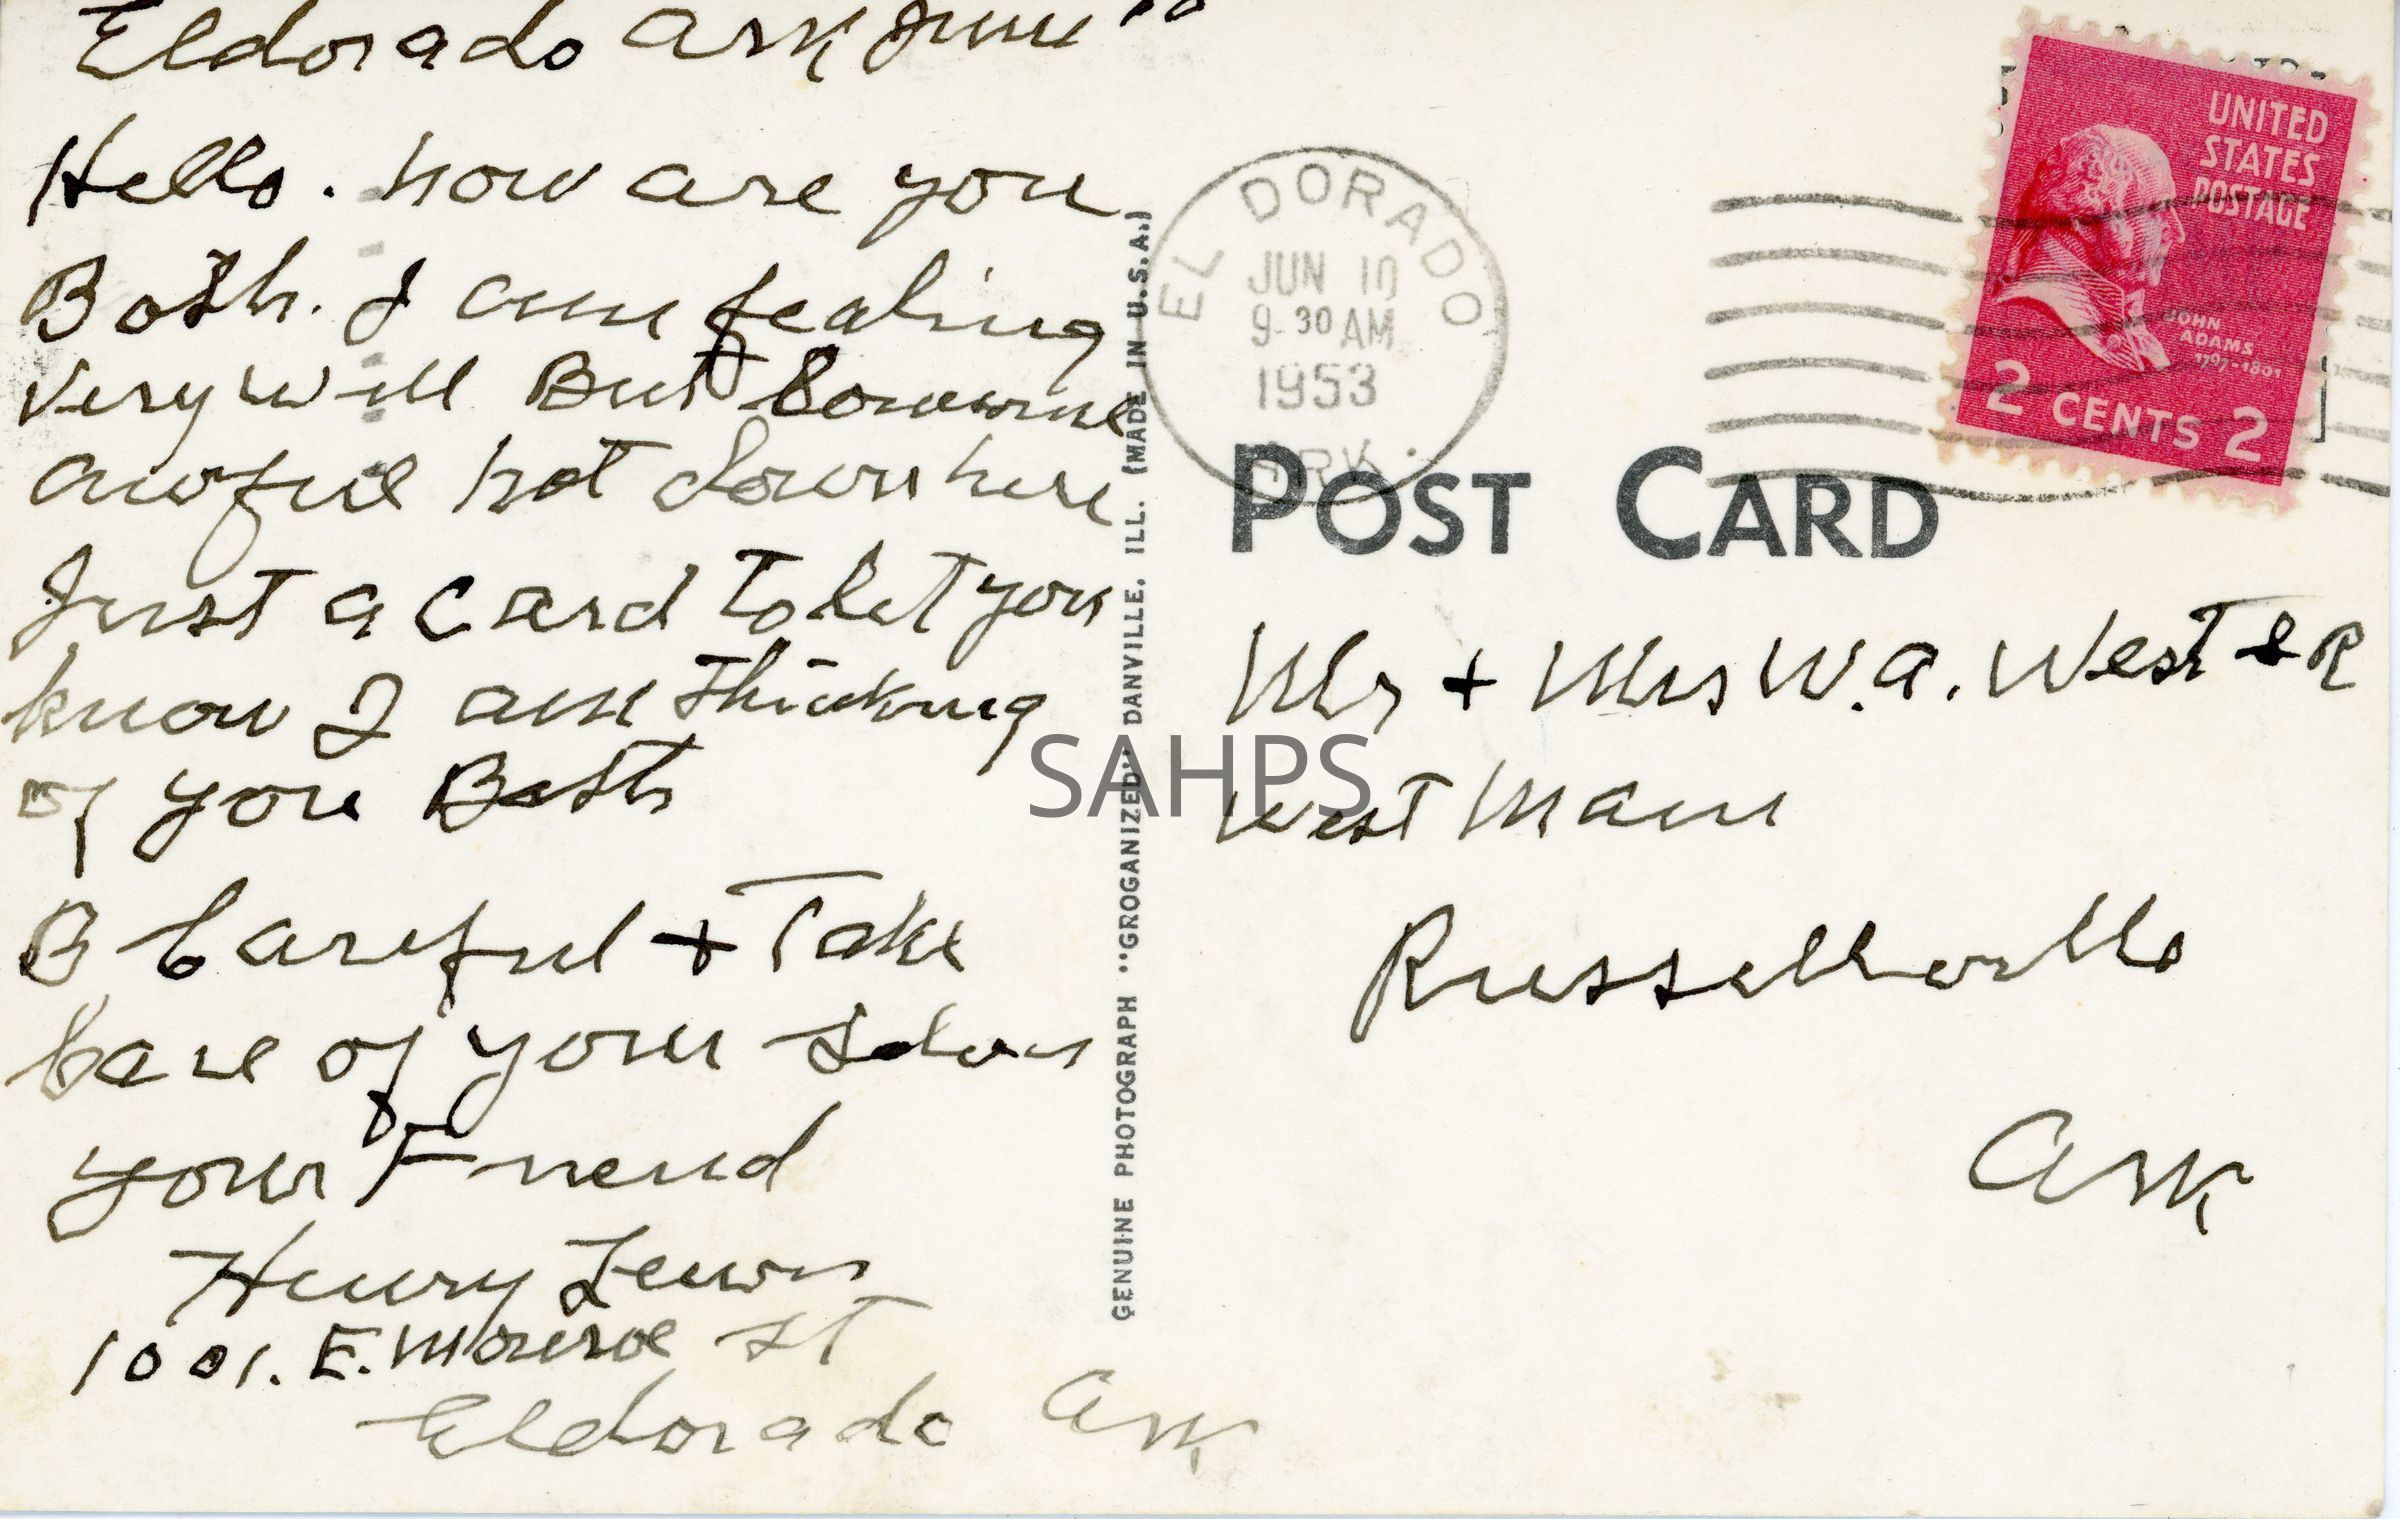 Eldorado Ark June 10
Hello. how are you
Both. I am fealing
very well But
awful hot down here
Just a Card To let you
know I am Thinking
of you Both
B Careful + Take
Care of your selvs
your Friend
Henry Lewis
1001. E. Monroe ST
Eldorado Ark
GENUINE PHOTOGRAPH "GROGANIZED" DANVILLE, ILL. (MADE IN U.S.A.)
EL DORADO
JUN 10
9 30 AM
1953
ARK.
UNITED
STATES
POSTAGE
JOHN
ADAMS
1797-1801
2 CENTS 2
POST CARD
Mr + Mrs W.A. West SR
West Main
Russellville
Ark
SAHPS